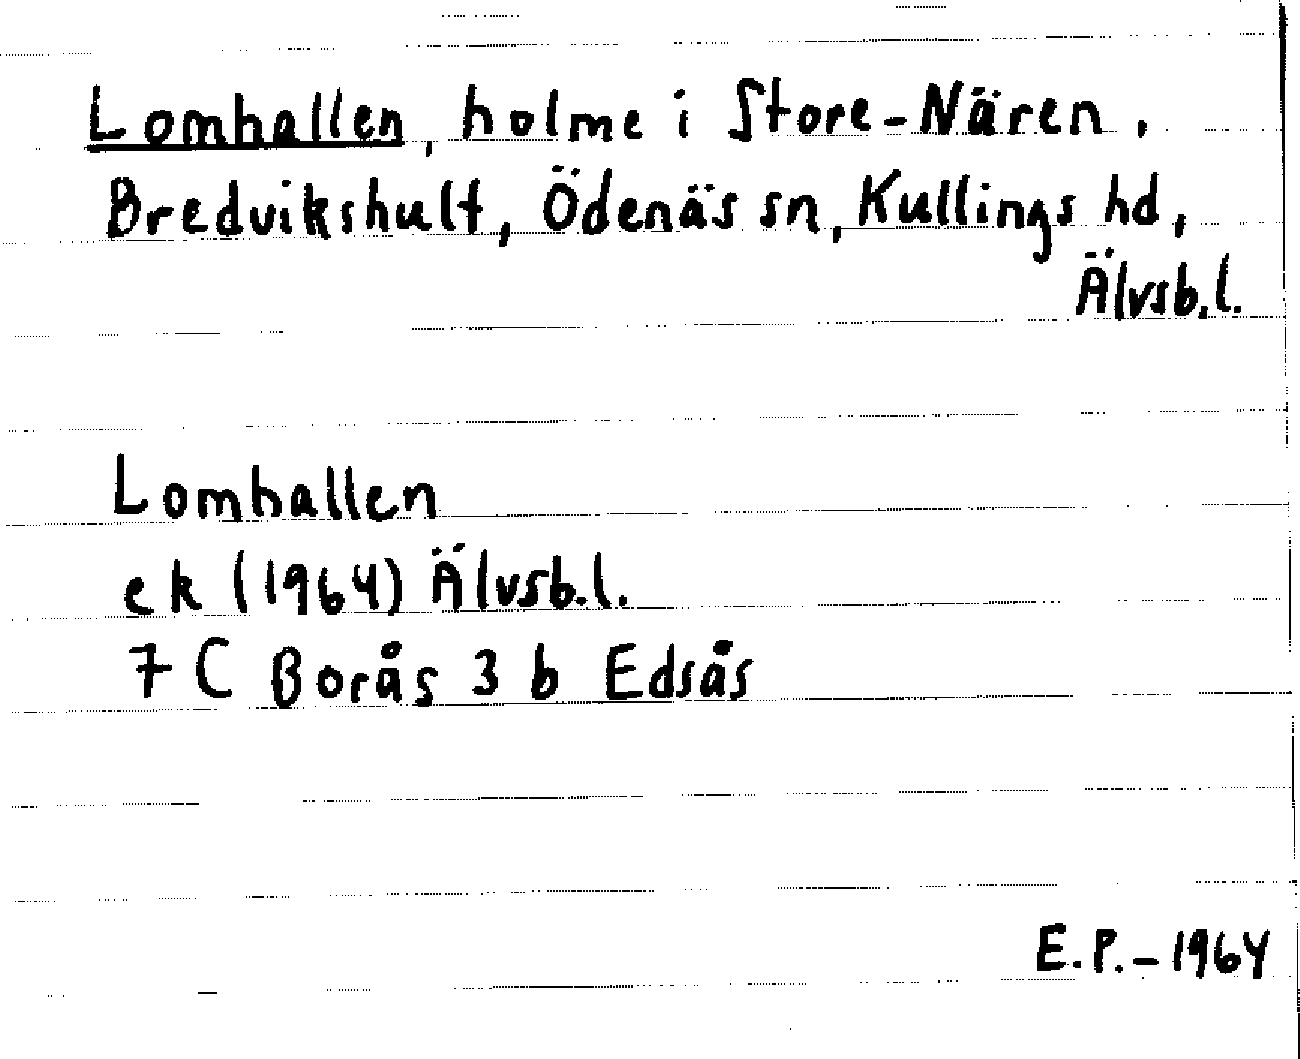 Lomhallen, holme i Store-Nären,
Bredvikshult, Ödenäs sn, Kullings hd,
Älvsb.l.
Lomhallen
ek (1964) Älvsb.l.
7 C Borås 3 b Edsås
E.P. - 1964